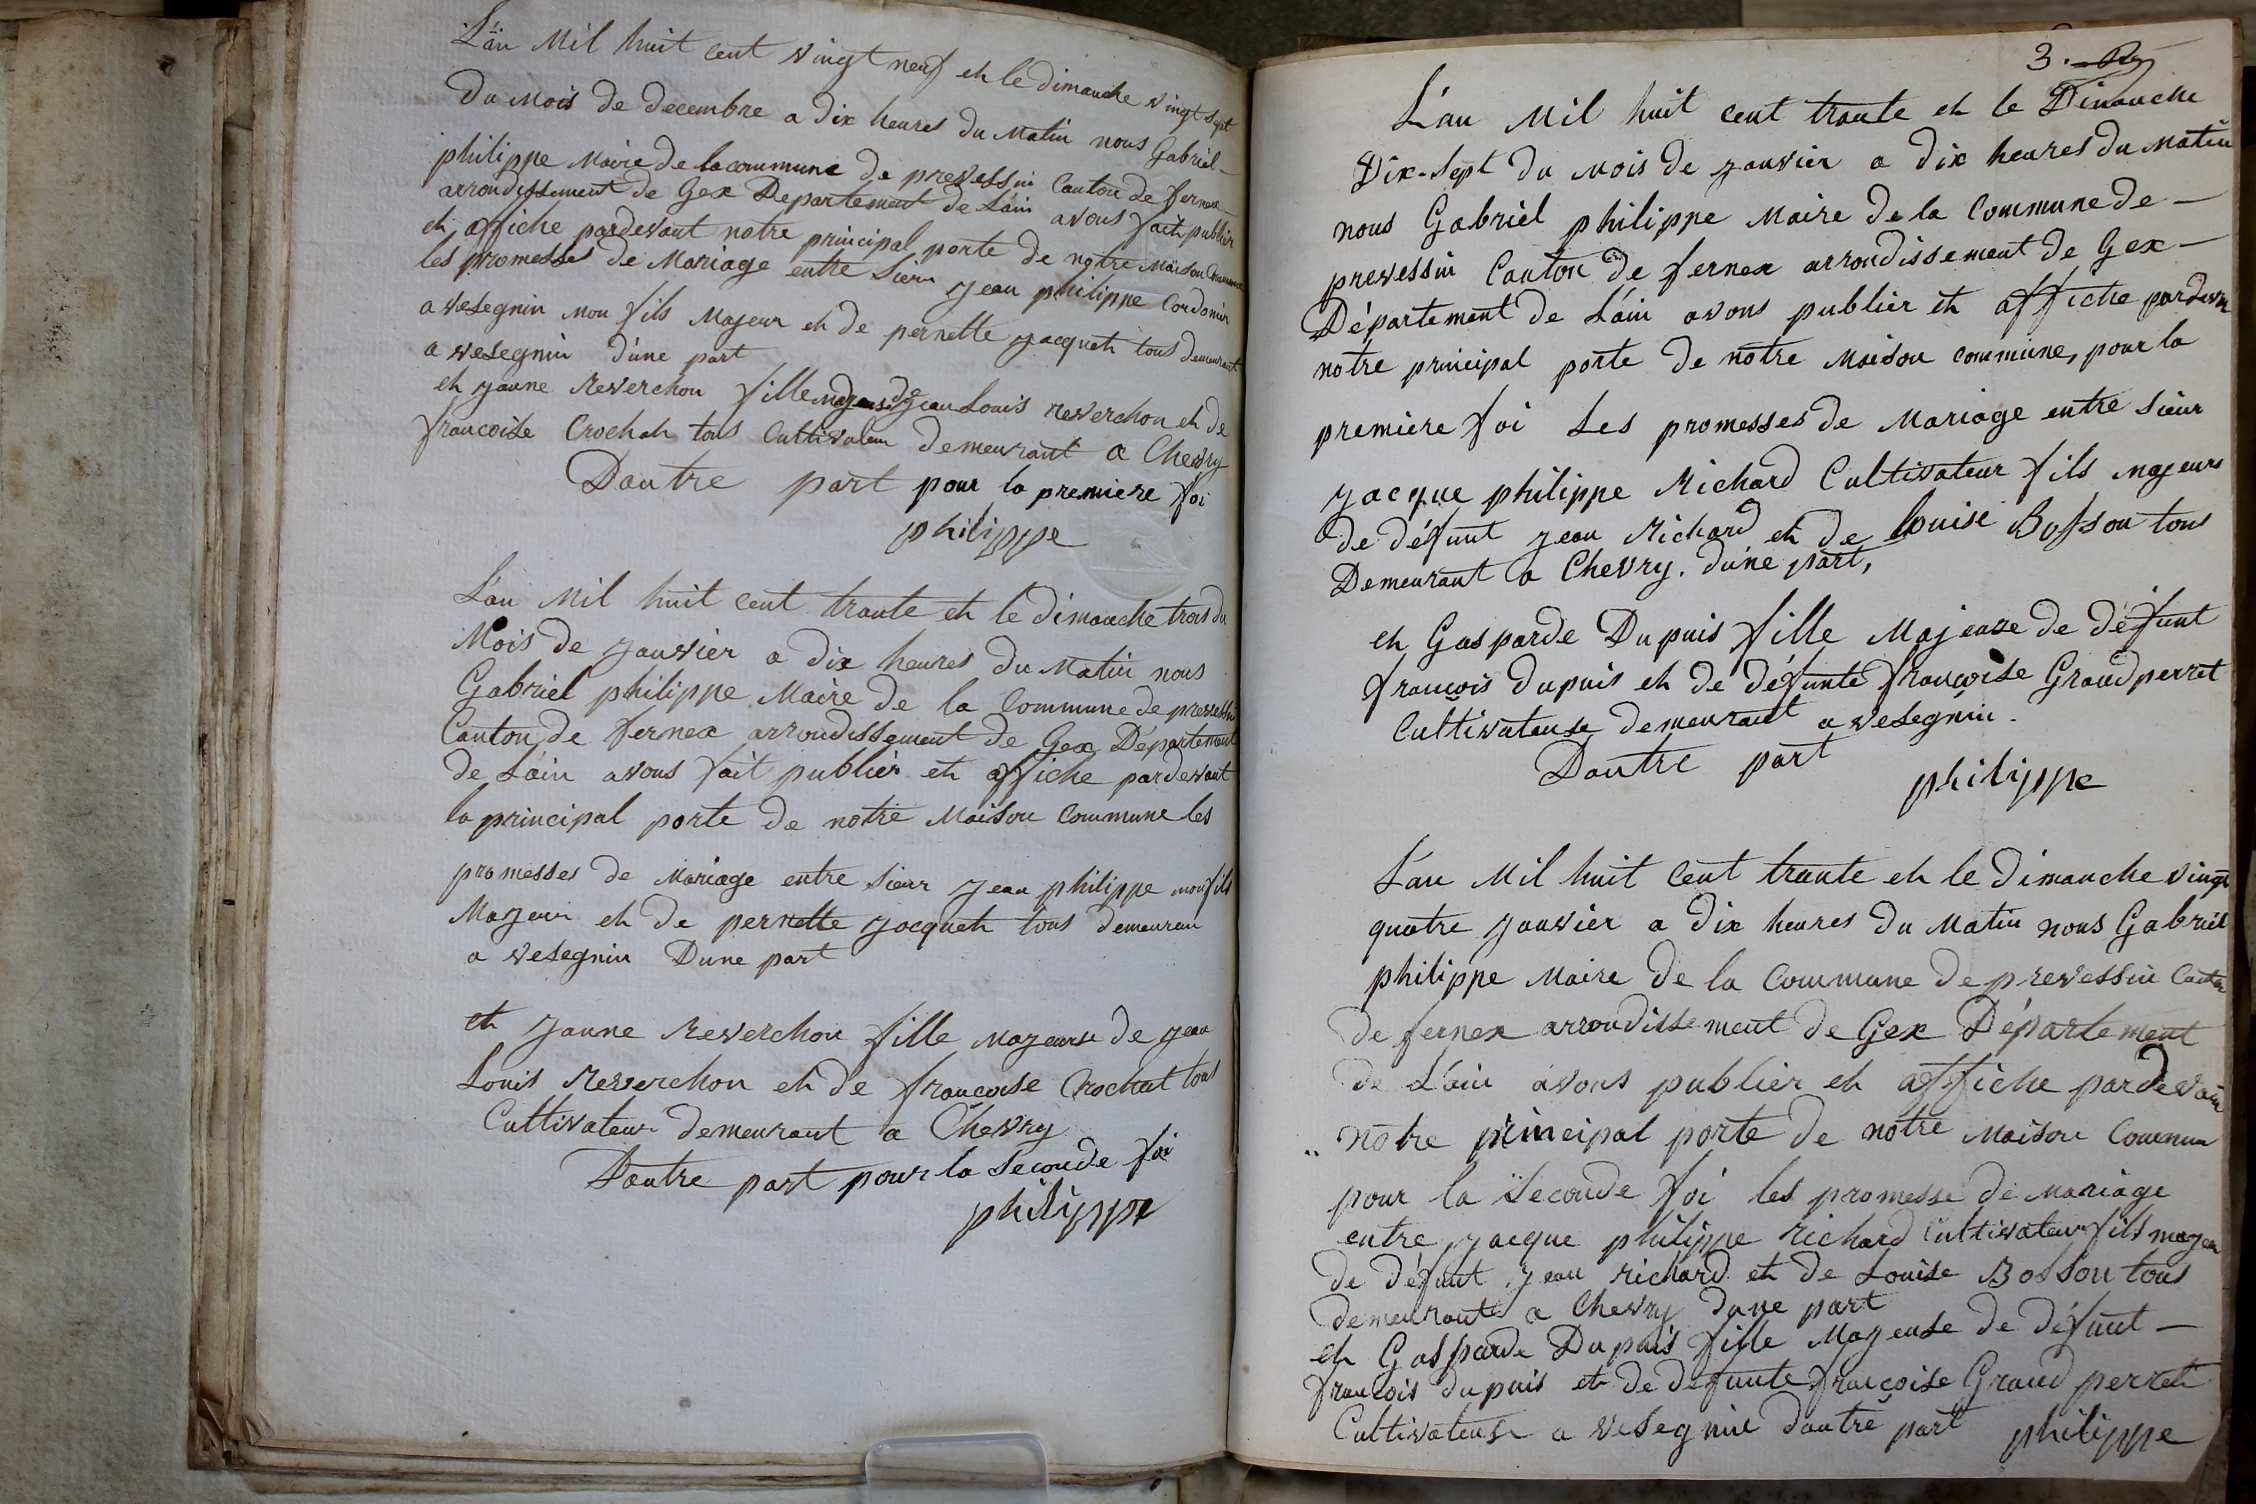 L'an Mil huit cent vingt neuf et le dimanche vingt sept
du Mois de decembre a dix heures du Matin nous Gabriel
philippe Maire de la commune de prevessin Canton de fernex
arrondissement de Gex Departement de L'ain avons fait publier
et affiche pardevant notre principal porte de notre Maison Commune
les promesses de Mariage entre Sieur jean philippe Cordonier
a vesegnin mon fils Majeur et de pernette jacquet tous demeurant
a vesegnin d'une part
et janne Reverchon fille majeuse de jean Louis reverchon et de
francoise Crochat tous Cultivateur demeurant a Chevry
Dautre part pour la premiere foi
philippe
L'an Mil huit cent trante et le dimanche trois du
Mois de janvier a dix heures du Matin nous
Gabriel philippe Maire de la Commune de prevessin
Canton de fernex arrondissement de Gex Departement
de L'ain avons fait publier et affiche pardevant
la principal porte de notre Maison Commune les
promesses de Mariage entre Sieur jean philippe mon fils
Majeur et de pernette jacquet tous demeuran
a vesegnin Dune part
et janne Reverchon fille majeuse de jean
Louis Reverchon et de francoise Crochat tous
Cultivateur demeurant a Chevry
Dautre part pour la Seconde foi
philippe
3.
L'an Mil huit cent trante et le Dimanche
Dix-Sept du Mois de janvier a dix heures du Matin
nous Gabriel philippe Maire de la Commune de —
prevessin Canton de fernex arrondissement de Gex —
Département de L'ain avons publier et affiche pardevan
notre principal porte de notre Maison commune, pour la
premiere foi Les promesses de Mariage entre Sieur
jacque philippe Richard Cultivateur fils majeurs
de défunt jean Richard et de Louise Bosson tous
Demeurant a Chevry. d'une part,
et Gasparde Dupuis fille Majeuse de défunt
françois dupuis et de défunte françoise Grandperret
Cultivateuse demeurant a vesegnin.
Dautre part
philippe
L'an Mil huit Cent trante et le dimanche vingt
quatre janvier a dix heures du Matin nous Gabriel
philippe Maire de la Commune de prevessin Canton
de fernex arrondissement de Gex Département
de L'ain avons publier et affiche pardevan
notre principal porte de notre Maison Commun
pour la Seconde foi les promesse de Mariage
entre jacque philippe Richard Cultivateur fils majeu
de défunt jean Richard et de Louise Bosson tous
demeurante a Chevry dune part
et Gasparde Dupuis fille Majeuse de défunt —
francois dupuis et de défunte françoise Grand perret
Cultivateuse a vesegnin dautre part philippe